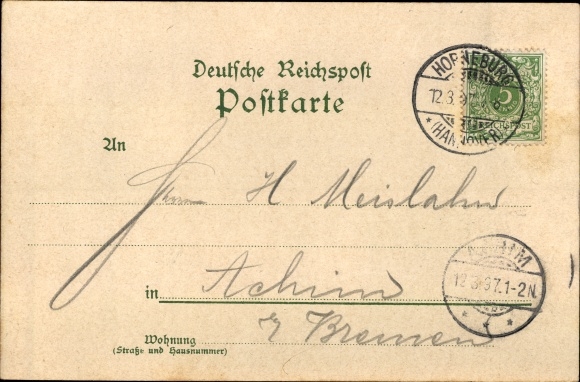 Deutsche Reichspost
Postkarte
HORNEBURG
12.3.97
* (HANNOVER) *
REICHSPOST
5
An
Herrn H Meislahn
in Achim
ACHIM
12.3.97.1-2N.
* * *
Wohnung
(Straße und Hausnummer)
Bremen